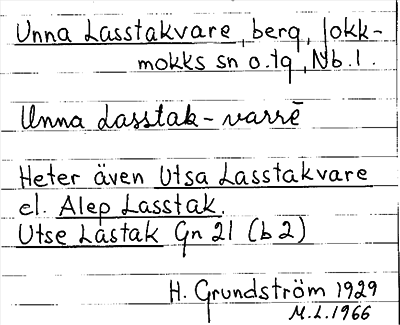 Unna Lasstakvare, berg, Jokk-
mokks sn o. tg, Nb. l.
Unna Lasstak-varrē
Heter även Utsa Lasstakvare
el. Alep Lasstak.
Utse Lastak Gn 21 (b2)
H. Grundström 1929
M.L. 1966